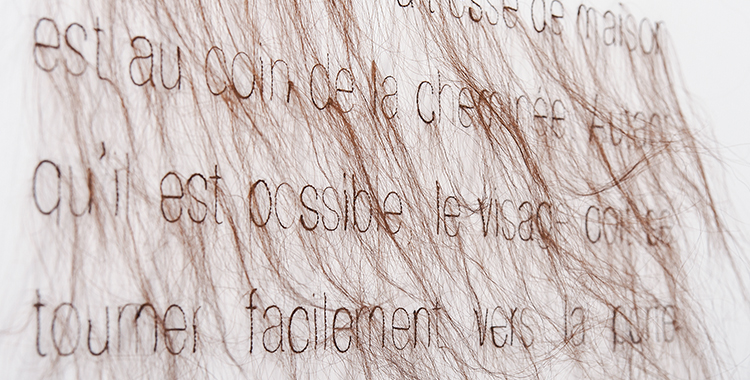 de maison
est au coin de la cheminée Autant
qu'il est possible le visage
tourner facilement vers la porte